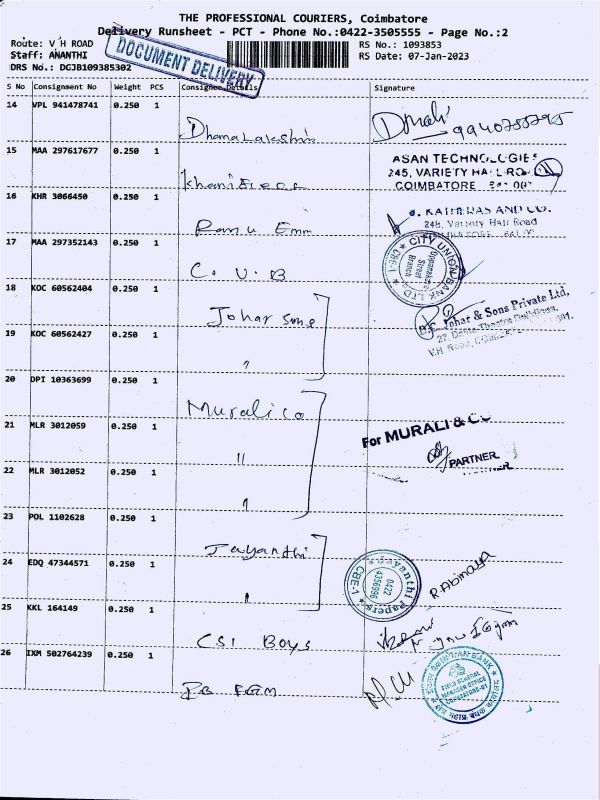 THE PROFESSIONAL COURIERS, Coimbatore
Delivery Runsheet - PCT - Phone No.:0422-3505555 - Page No.:2
Route: V H ROAD
Staff: ANANTHI
DRS No.: DGJB109385302
DOCUMENT DELIVERY
RS No.: 1093853
RS Date: 07-Jan-2023
S No Consignment No Weight PCS Consignee Details Signature
14 VPL 941478741 0.250 1
Dhanalakshmi
9940755795
15 MAA 297617677 0.250 1
ASAN TECHNOLOGIES
245, VARIETY HALL ROAD
COIMBATORE
16 KHR 3066450 0.250 1
Ramu Emm
AND CO.
248, Variety Hall Road
17 MAA 297352143 0.250 1
C. U. B
CITY UNION BANK LTD
Street
Branch
CBE-1
18 KOC 60562404 0.250 1
Johar Sons
Johar & Sons Private Ltd,
V.H Road,
19 KOC 60562427 0.250 1
"
20 DPI 10363699 0.250 1
Murali co
21 MLR 3012059 0.250 1
"
For MURALI & CO
PARTNER
22 MLR 3012052 0.250 1
"
23 POL 1102628 0.250 1
Jayanthi
24 EDQ 47344571 0.250 1
"
Jayanthi Papers
0422
4366996
CBE-1
25 KKL 164149 0.250 1
CSI Boys
26 IXM 502764239 0.250 1
INDIAN BANK
FIELD GENERAL
MANAGER OFFICE
COIMBATORE-01